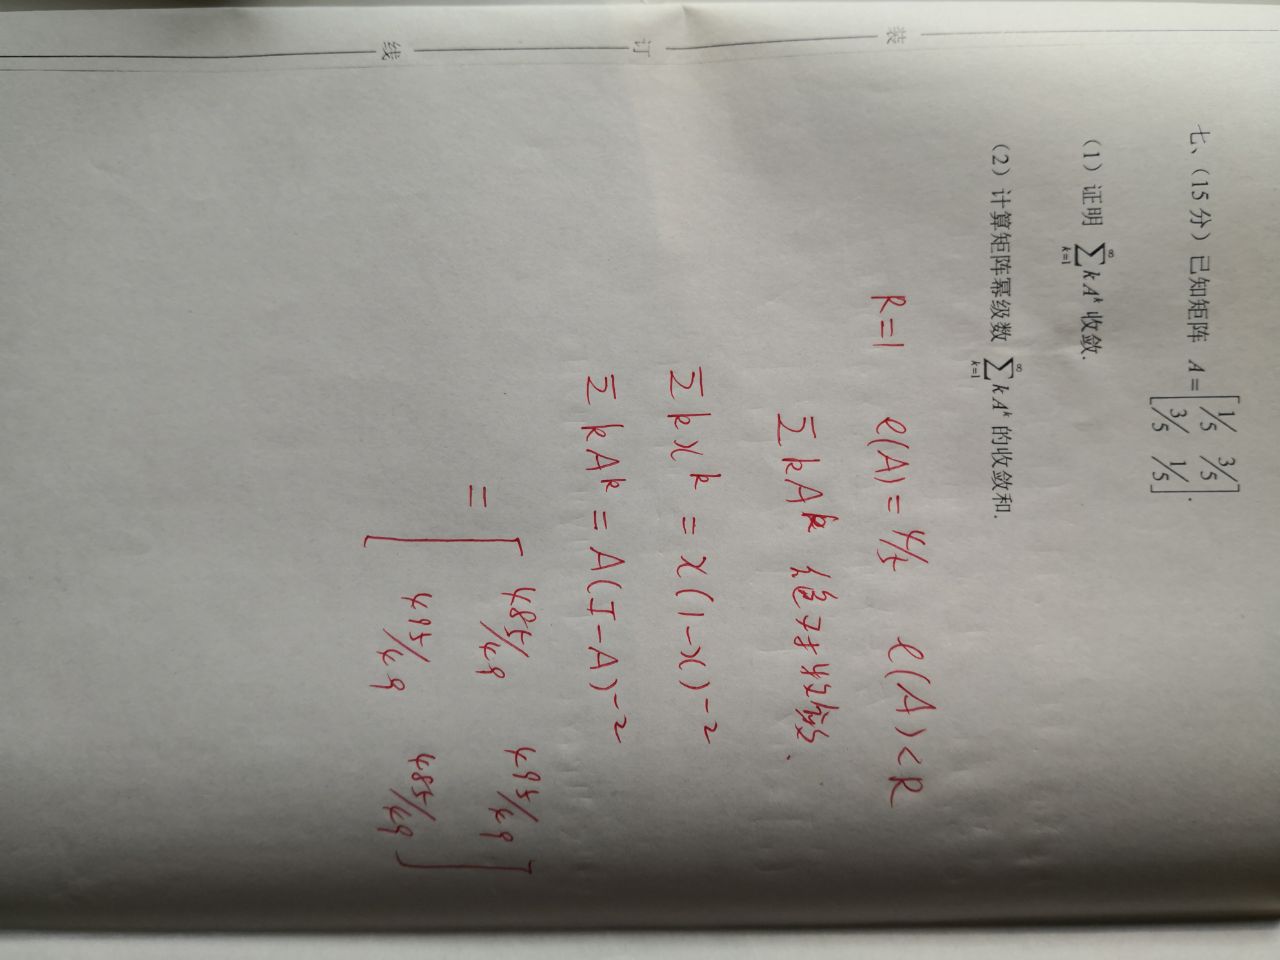 七、（15 分）已知矩阵 A = [1/5 3/5; 3/5 1/5].
（1）证明 ∑_{k=1}^{∞} k A^k 收敛.
（2）计算矩阵幂级数 ∑_{k=1}^{∞} k A^k 的收敛和.
装
R=1 ρ(A)=4/5 ρ(A)<R
∑kA^k 绝对收敛.
∑kx^k = x(1-x)^{-2}
订
∑kA^k = A(I-A)^{-2}
= [485/49 495/49
495/49 485/49]
线